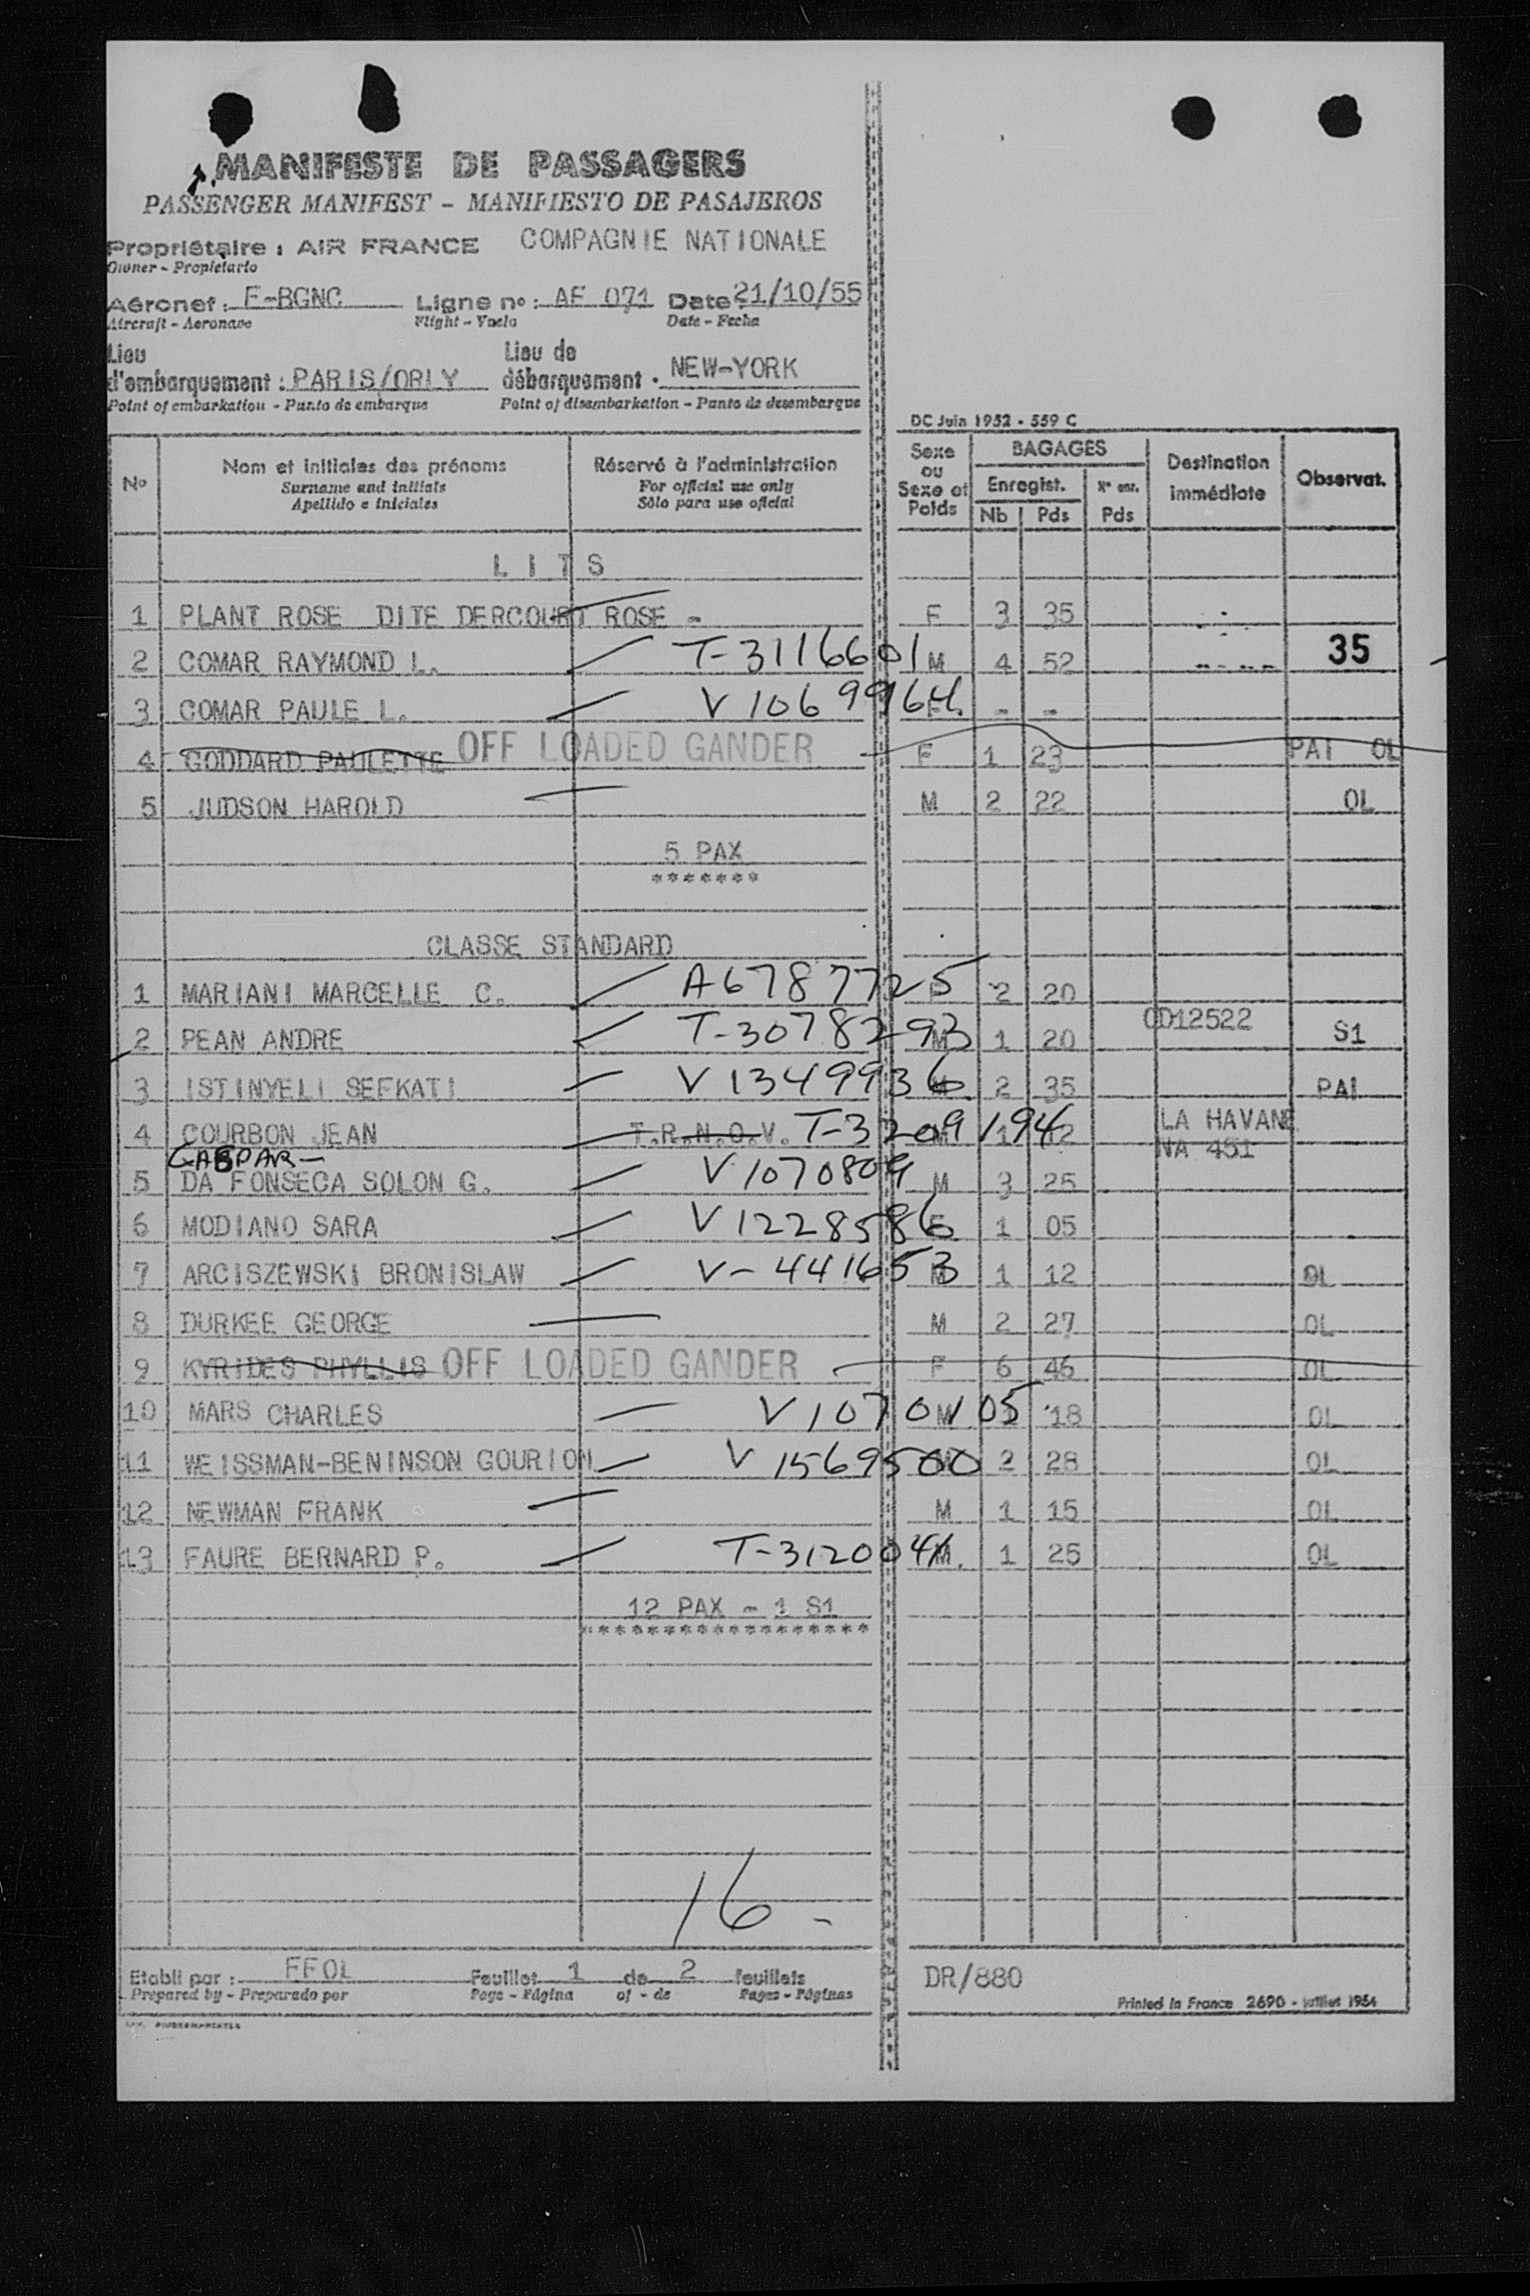 MANIFESTE DE PASSAGERS
PASSENGER MANIFEST - MANIFIESTO DE PASAJEROS
Propriétaire : AIR FRANCE COMPAGNIE NATIONALE
Owner - Propietario
Aéronef : F-BGNC Ligne no : AF 071 Date 21/10/55
Aircraft - Aeronave Flight - Vuelo Date - Fecha
Lieu d'embarquement : PARIS/ORLY Lieu de débarquement . NEW-YORK
Point of embarkation - Punto de embarque Point of disembarkation - Punto de desembarque
DC Juin 1952 - 559 C
No Nom et initiales des prénoms Réservé à l'administration Sexe ou Sexe et Poids BAGAGES Destination immédiate Observat.
Surname and initials For official use only Enregist. Nn enr.
Apellido e iniciales Sólo para uso oficial Nb Pds Pds
L I T S
1 PLANT ROSE DITE DERCOURT ROSE - F 3 35
2 COMAR RAYMOND L. T-3116601 M 4 52 ---- 35
3 COMAR PAULE L. V 10699964 F. - -
4 GODDARD PAULETTE OFF LOADED GANDER F 1 23 PAI OL
5 JUDSON HAROLD M 2 22 OL
5 PAX
*******
CLASSE STANDARD
1 MARIANI MARCELLE C. A6787725 F 2 20
2 PEAN ANDRE T-3078293 M 1 20 CD12522 S1
3 ISTINYELI SEFKATI V 1349936 M. 2 35 PAI
4 COURBON JEAN T.R.N.O.V. T-3209194 M 1 12 LA HAVANE
NA 451
GASPAR -
5 DA FONSECA SOLON G. V 1070809 M 3 25
6 MODIANO SARA V 1228586 F 1 05
7 ARCISZEWSKI BRONISLAW V-441653 M 1 12 OL
8 DURKEE GEORGE M 2 27 OL
9 KYRIDES PHYLLIS OFF LOADED GANDER F 6 46 OL
10 MARS CHARLES V 1070105 M 18 OL
11 WEISSMAN-BENINSON GOURION V 1569500 2 28 OL
12 NEWMAN FRANK M 1 15 OL
13 FAURE BERNARD P. T-3120041 M. 1 25 OL
12 PAX - 1 S1
******************
16 -
Etabli par : FFOL Feuillet 1 de 2 feuillets DR/880
Prepared by - Preparado por Page - Página of - de Pages - Páginas
Printed in France 2690 - juillet 1954